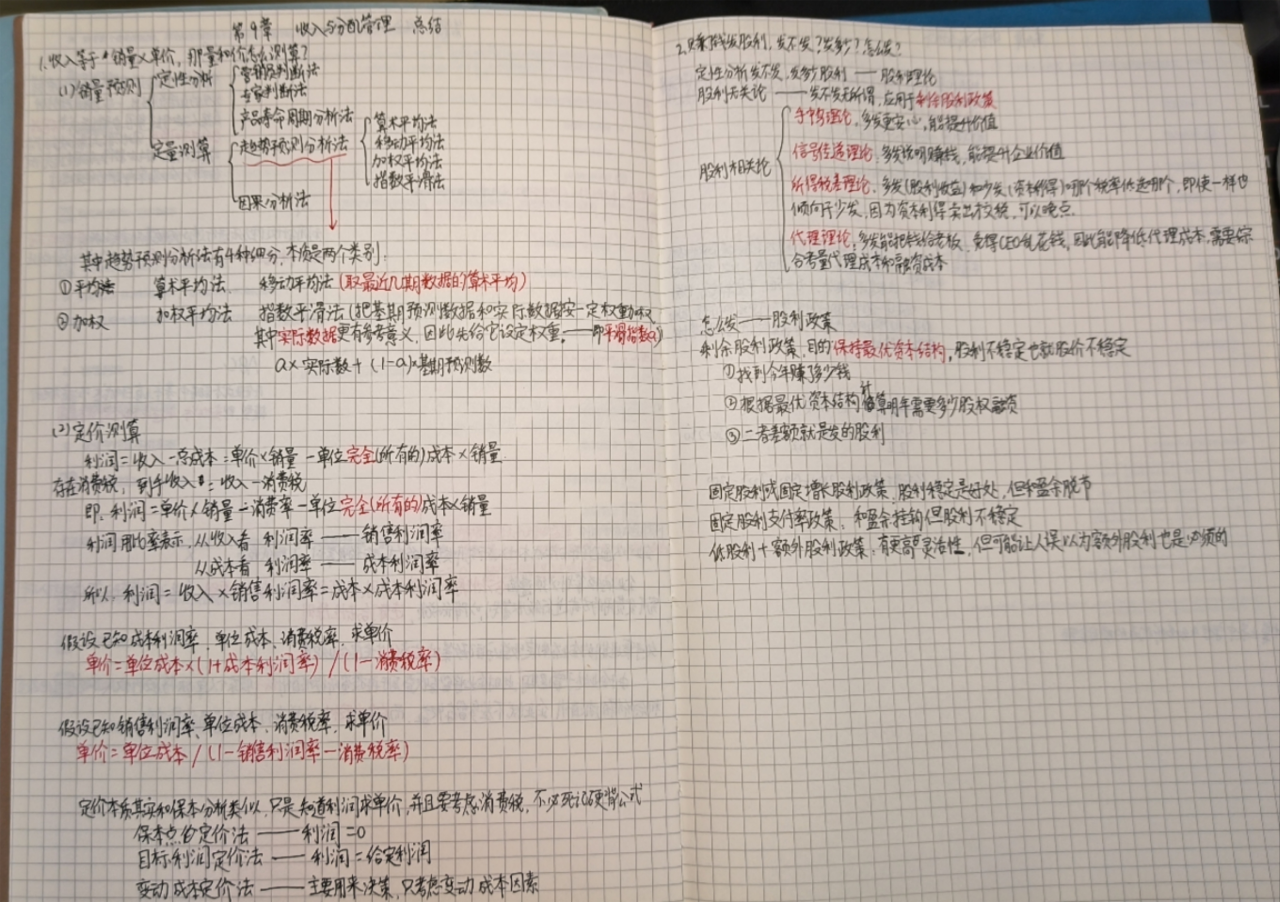 第9章 收入与分配管理 总结
1.收入等于销量×单价，那量和价怎么测算？
(1)销量预则
定性分析
营销员判断法
专家判断法
产品寿命周期分析法
定量测算
趋势预则分析法
算术平均法
移动平均法
加权平均法
指数平滑法
因果分析法
其中趋势预则分析法有4种细分，本质是两个类别：
①平均法 算术平均法 移动平均法(取最近几期数据的算术平均)
②加权 加权平均法 指数平滑法(把基期预测数据和实际数据按一定权重加权
其中实际数据更有参考意义，因此先给它设定权重，——即平滑指数a)
a×实际数+(1-a)×基期预测数
(2)定价测算
利润=收入-总成本=单价×销量-单位完全(所有的)成本×销量
存在消费税，到手收入=收入-消费税
即，利润=单价×销量-消费率-单位完全(所有的)成本×销量
利润用比率表示，从收入看 利润率——销售利润率
从成本看 利润率——成本利润率
所以，利润=收入×销售利润率=成本×成本利润率
假设已知成本利润率、单位成本、消费税率，求单价
单价=单位成本×(1+成本利润率)/(1-消费税率)
假设已知销售利润率、单位成本、消费税率，求单价
单价=单位成本/(1-销售利润率-消费税率)
定价本质其实和保本分析类似，只是知道利润求单价，并且要考虑消费税，不必死记硬背公式
保本点的定价法——利润=0
目标利润定价法——利润=给定利润
变动成本定价法——主要用来决策，只考虑变动成本因素
2.赚了钱发股利，发不发？发多少？怎么发？
定性分析发不发，发多少股利——股利理论
股利无关论——发不发无所谓，应用于剩余股利政策
股利相关论
手中鸟理论，多发更安心，能提升价值
信号传递理论，多发说明赚钱，能提升企业价值
所得税差理论，多发(股利收益)和少发(资本利得)哪个税率低选哪个，即使一样也
倾向于少发，因为资本利得卖出才交税，可以晚点.
代理理论，多发能把钱给老板，CEO乱花钱，因此能降低代理成本，需要综
合考量代理成本和融资成本
怎么发——股利政策
剩余股利政策，目的保持最优资本结构，股利不稳定也就股价不稳定
①找到今年赚了多少钱
②根据最优资本结构计算明年需要多少股权融资
③二者差额就是发的股利
固定股利或固定增长股利政策，股利稳定是好处，但和盈余脱节
固定股利支付率政策，和盈余挂钩但股利不稳定
低股利+额外股利政策，有更高灵活性，但可能让人误以为额外股利也是必须的